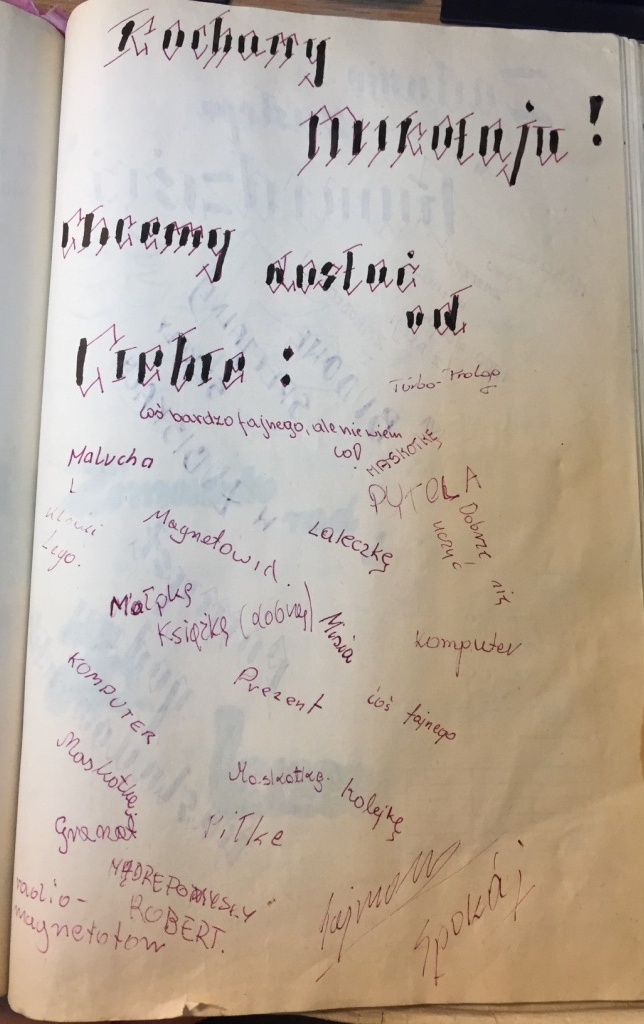 Kochany
Mikołaju!
chcemy dostać
od
Ciebie:
Turbo-Trolog
Coś bardzo fajnego, ale nie wiem
co?
MASKOTKĘ
Malucha
i
klocki
Lego.
PYTOLA
Dobrze się
uczyć
Magnetowid.
Laleczkę
Małpkę
Książkę (dobrą)
Misia
komputer
KOMPUTER
Prezent
coś fajnego
Maskotkę
Maskotkę.
kolejkę
Granat
Piłkę
MĄDRE POMYSŁY
ROBERT.
radio-
magnetofon
Spokój